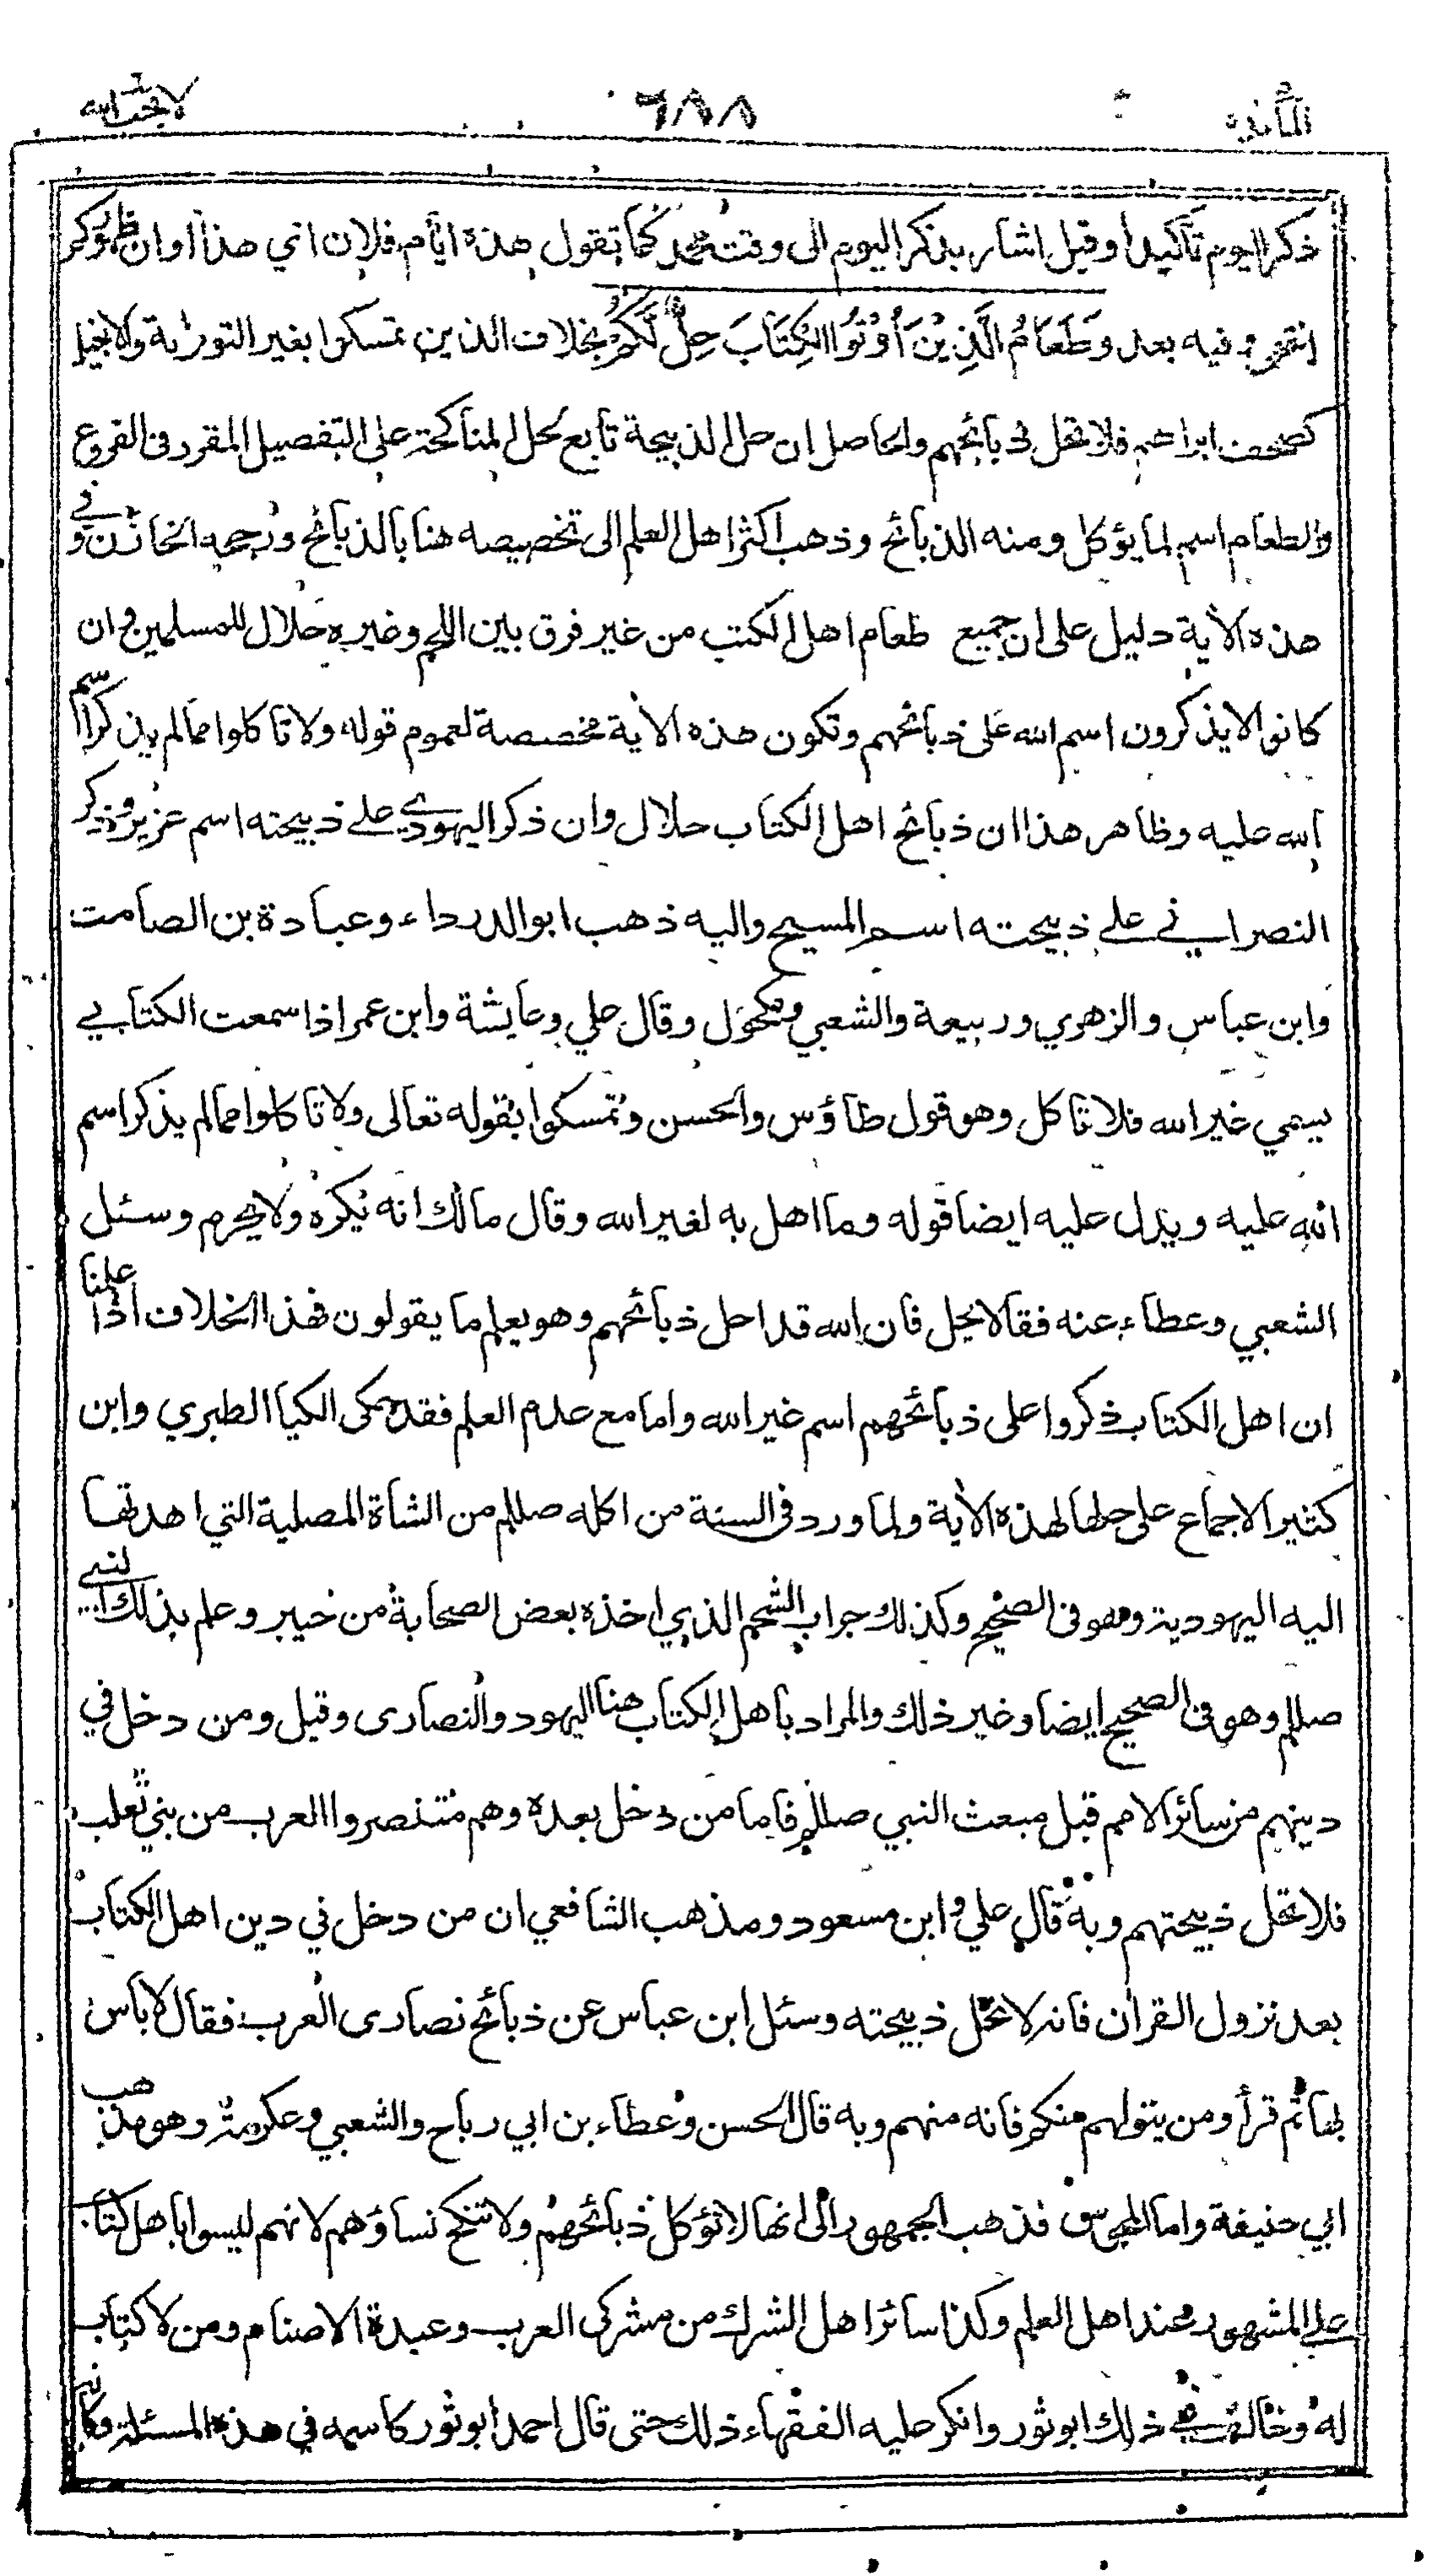 المائدة ٦٨٨ لا يحب الله
ذكر اليوم تأكيدا وقيل اشار بذكر اليوم الى وقت محمد كما تقول هذه ايام فلان اي هذا اوان ظهوركم
انتهى وفيه بعد وَطَعَامُ الَّذِيْنَ اُوْتُوا الْكِتَابَ حِلٌّ لَّكُمْ بخلاف الذين تمسكوا بغير التورٰية والانجيل
كصحف ابراهيم فلا تحل ذبائحهم والحاصل ان حل الذبيحة تابع لحل المناكحة على التفصيل المقرر في الفروع
والطعام اسم لما يؤكل ومنه الذبائح وذهب اكثر اهل العلم الى تخصيصه هنا بالذبائح ورجحه الخازن وفي
هذه الاٰية دليل على ان جميع طعام اهل الكتب من غير فرق بين اللحم وغيره حلال للمسلمين وان
كانوا لا يذكرون اسم الله على ذبائحهم وتكون هذه الاٰية مخصصة لعموم قوله ولا تاكلوا مما لم يذكر اسم
الله عليه وظاهر هذا ان ذبائح اهل الكتاب حلال وان ذكر اليهودي على ذبيحته اسم عزير وذكر
النصراني على ذبيحته اسم المسيح واليه ذهب ابو الدرداء وعبادة بن الصامت
وابن عباس والزهري وربيعة والشعبي ومكحول وقال علي وعايشة وابن عمر اذا سمعت الكتابي
يسمي غير الله فلا تاكل وهو قول طاؤس والحسن وتمسكوا بقوله تعالى ولا تاكلوا مما لم يذكر اسم
الله عليه ويدل عليه ايضا قوله وما اهل به لغير الله وقال مالك انه يكره ولا يحرم وسئل
الشعبي وعطاء عنه فقالا يحل فان الله قد احل ذبائحهم وهو يعلم ما يقولون فهذا الخلاف اذا علمنا
ان اهل الكتاب ذكروا على ذبائحهم اسم غير الله واما مع عدم العلم فقد حكى الكيا الطبري وابن
كثير الاجماع على حلها لهذه الاٰية ولما ورد في السنة من اكله صللم من الشاة المصلية التي اهدتها
اليه اليهودية وهو في الصحيح وكذلك جراب الشحم الذي اخذه بعض الصحابة من خيبر وعلم بذلك النبي
صللم وهو في الصحيح ايضا وغير ذلك والمراد باهل الكتاب هنا اليهود والنصارى وقيل ومن دخل في
دينهم من سائر الامم قبل مبعث النبي صللم فاما من دخل بعده وهم متنصروا العرب من بني تغلب
فلا تحل ذبيحتهم وبه قال علي وابن مسعود ومذهب الشافعي ان من دخل في دين اهل الكتاب
بعد نزول القراٰن فانه لا تحل ذبيحته وسئل ابن عباس عن ذبائح نصارى العرب فقال لا باس
بها ثم قرأ ومن يتولهم منكم فانه منهم وبه قال الحسن وعطاء بن ابي رباح والشعبي وعكرمة وهو مذهب
ابي حنيفة واما المجوس فذهب الجمهور الى انها لا تؤكل ذبائحهم ولا تنكح نساؤهم لانهم ليسوا باهل كتاب
على المشهور عند اهل العلم وكذا سائر اهل الشرك من مشركي العرب وعبدة الاصنام ومن لا كتاب
له وخالف في ذلك ابو ثور وانكر عليه الفقهاء ذلك حتى قال احمد ابو ثور كاسمه في هذه المسئلة وكانه